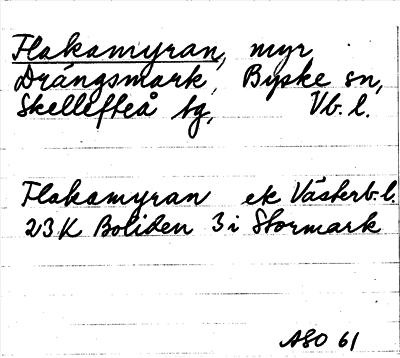 Flakamyran, myr
Drängsmark, Byske sn,
Skellefteå tg, Vb. l.
Flakamyran ek Västerb. l.
23K Boliden 3 i Stormark
ASO 61